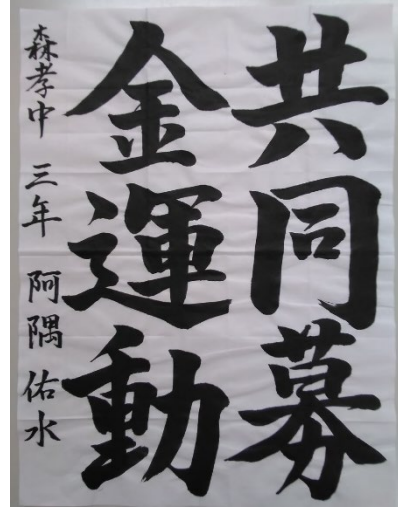 共同募
金運動
森孝中 三年 阿隅 佑水